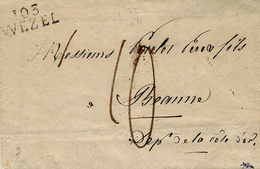 103
WEZEL
Messieurs Poulet Pere & fils
10
a Beaune
Depᵗ de la côte d'or